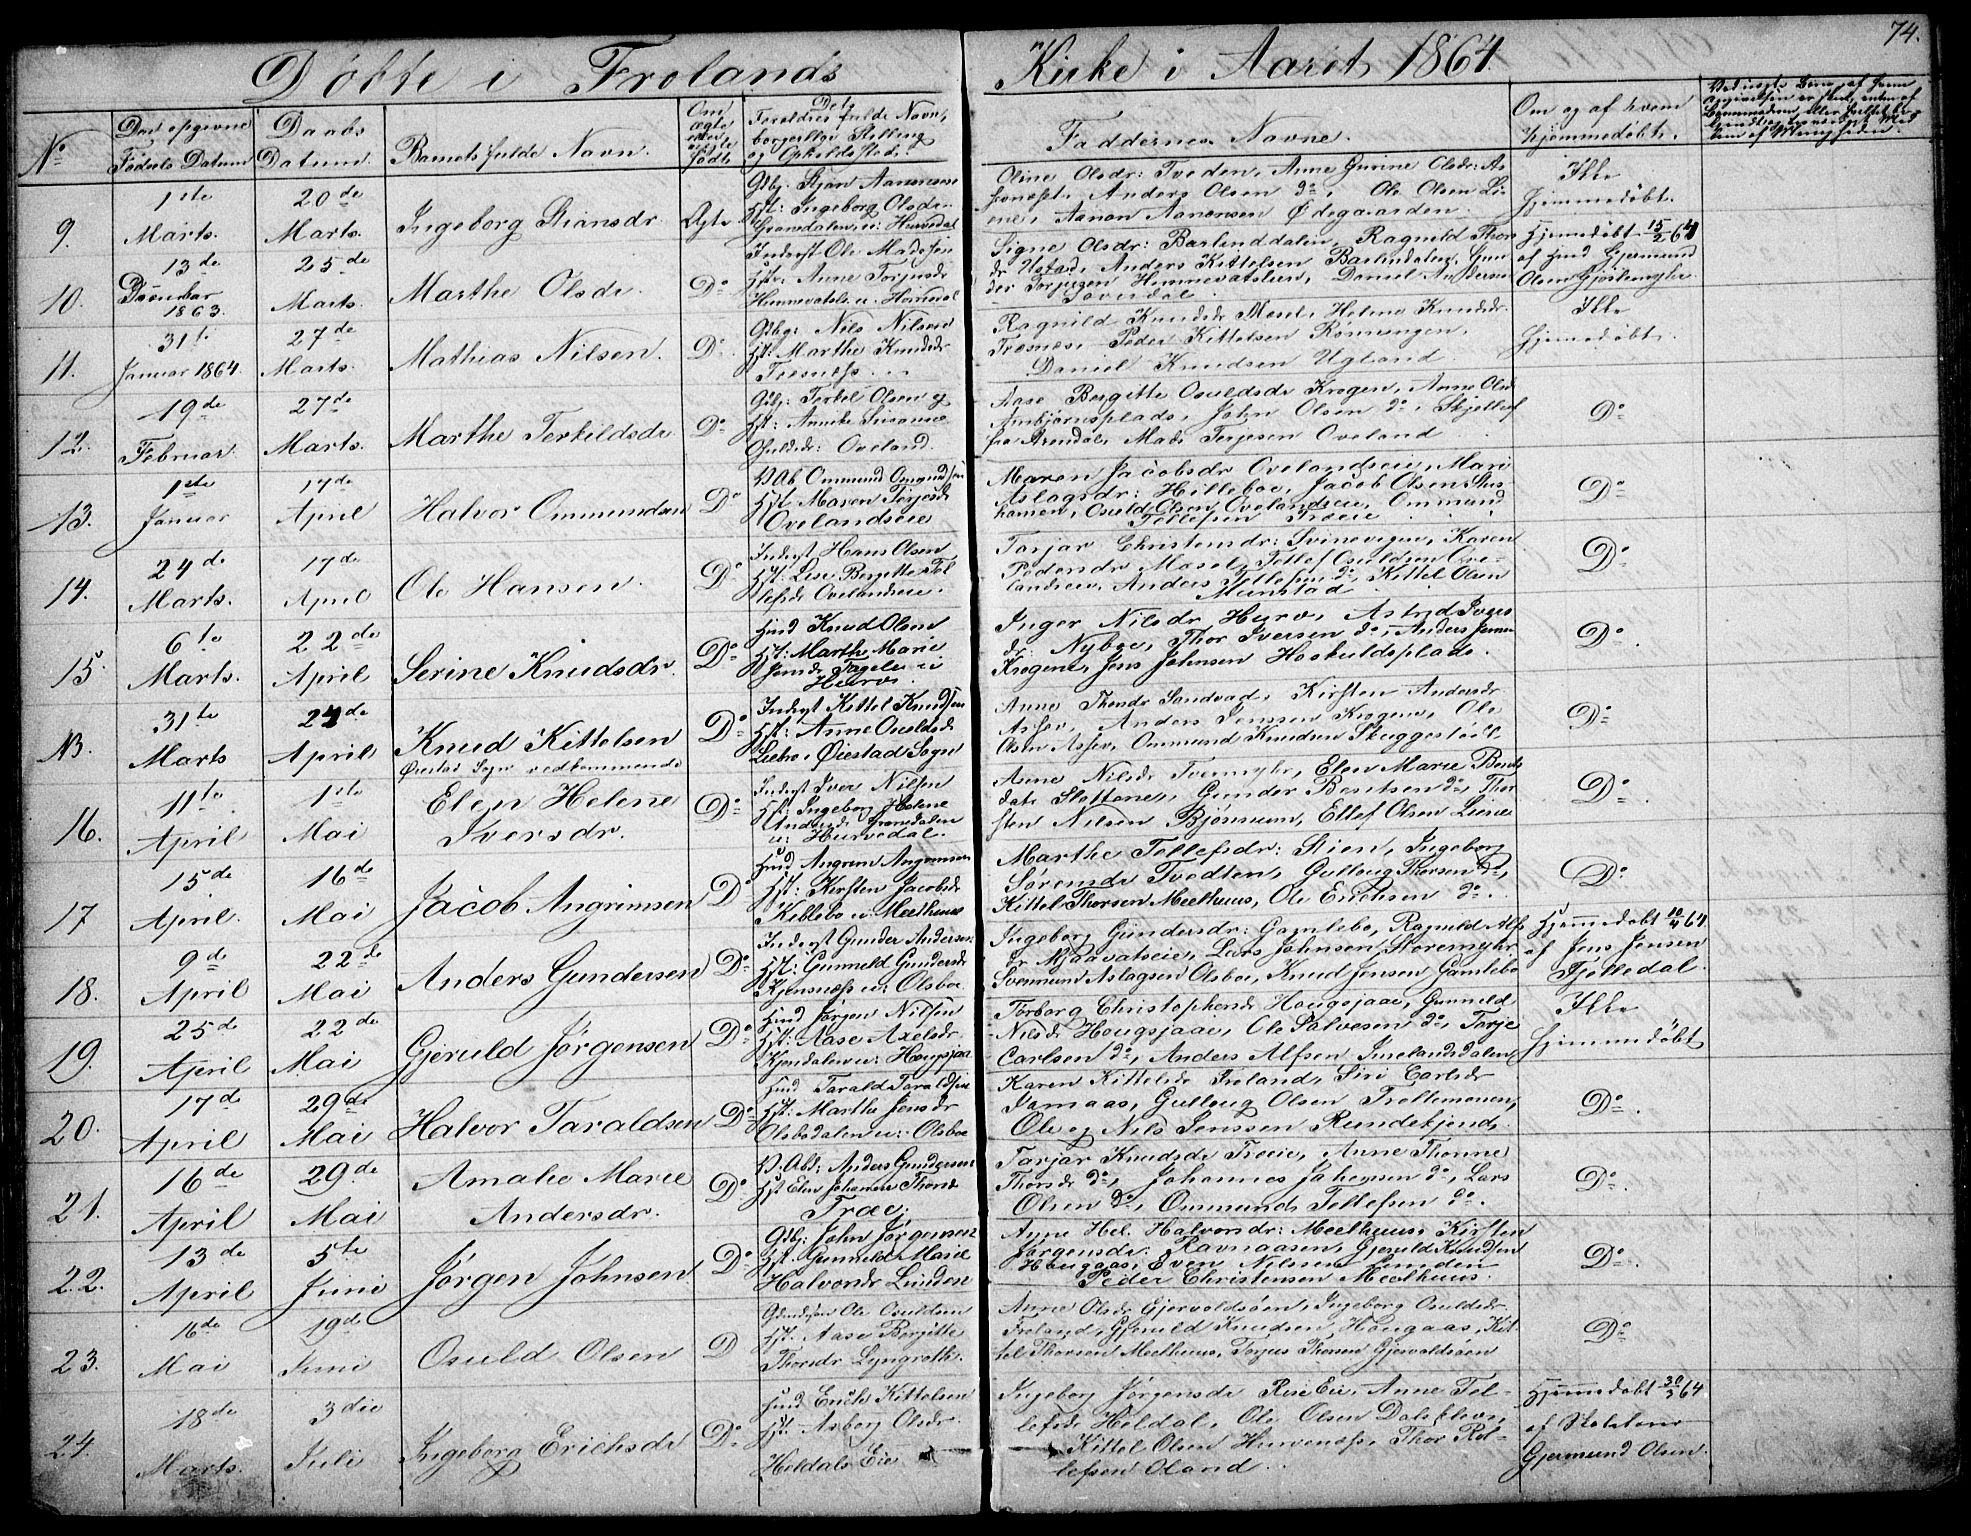 74.
Döbte i Frolands Kirke i Aaret 1864.
No
Den opgivne
Födsels Datum
Daabs
Datum.
Barnets fulde Navn.
Om
ægte
eller
uægte
födte
Dets
Foreldres fulde Navn,
borgerlige Stilling
og Opholdssted.
Faddernes Navne.
Om og af hvem
hjemmedöbt.
9.
1ste
Marts.
20de
Marts.
Ingeborg Stiansdr.
Ægte
Gbg. Stian Aanonsen
Hst: Ingeborg Olsdr.
Gransdalen u: Hurvedal
Oline Olsdr: Tveden, Anne Gurine Olsdr: As-
Anders Olsen do Ole Olsen Li-
ene, Aanon Aanonsen Ødegaarden.
Ikke
hjemmedöbt.
10.
13de
December
1863.
25de
Marts.
Marthe Olsdr.
Do
Inderst Ole Madssen
Hstr: Anne Torjusdr
Himmevatslien u. Hurvedal
Signe Olsdr: Barlinddalen, Ragnild Thor
dr Ustad, Anders Kittelsen Barlindalen, Gun-
der Torjusen Himmevatslien, Daniel Andersen
Hjemedöbt 15/2 64
af Husd Gjermund
Olsen Gjöslemyhr.
11.
31te
Januar 1864.
27de
Marts.
Mathias Nilsen.
Do
Gdbg: Nils Nilsen
Hst: Marthe Knudsdr
Tresnæss...
Ragnild Knudsdr Mosel, Helene Knudsdr.
Tresnæss, Peder Kittelsen Rönningen,
Daniel Knudsen Ugland.
Ikke
hjemedöbt.
12.
19de
Februar.
27de
Marts.
Marthe Terkildsdr.
Do
Gdbg: Terkel Olsen og
Hst: Annike Susanne
Osuldsdr: Oveland.
Aase Bergitte Osuldsdr Krogen, Anne Olsdr
Ambjörnsplads, John Olsen do, Skjellef
fra Arendal, Mads Terjesen Oveland
Do
13.
1ste
Januar
17de
April
Halvor Ommundsen
Do
P Ab Ommund Omundsen
Hst: Maren Terjesdr
Ovelandseie
Maren Jacobsdr Ovelandseie, Mari
Aslagsdr: Hilleboe, Jacob Olsen Stis-
hamen, Osuld Olsen Ovelandseie, Ommund
Tellefsen Træeie
Do
14.
24de
Marts.
17de
April
Ole Hansen.
Do
Inderst Hans Olsen
Hst: Lise Bergitte Tel
lefsdr Ovelandseie.
Torjar Christensdr: Svinevigen, Karen
Pedersdr Mosel, Tellef Osuldsen Ove-
landseie, Anders Tellefsen do, Kittel Olsen
Munstad.
Do
15.
6te
Marts.
22de
April
Serine Knudsdr.
Do
Husd Knud Olsen
Hst: Marthe Marie
Jensdr Fagelie u
Hurv.
Inger Nilsdr Hurv, Astrid Ivers
dr: Nyboe, Thor Iversen do, Anders Jensen
Krogene, Jens Johnsen Haskuldsplads.
Do.
NB.
31te
Marts
24de
April
Knud Kittelsen
Öiestad Sogn vedkommende
Do
Inderst Kittel Knudsen
Hst: Anne Osuldsdr
Liebro, Øiestad Sogn
Anne Thordr Sandvad, Kirsten Andersdr
Assev, Anders Jenssen Krogene, Ole
Olsen Assev, Ommund Knudsen Skuggestöel
Do
16.
11te
April
1ste
Mai
Elen Helene
Iversdr.
Do
Inderst Iver Nilsen
Hst: Ingeborg Helene
Andersdr Gransdalen
u: Hurvedal.
Anne Nilsdr Tvermyhr, Elen Marie Bents
datr Slottene, Gunder Bentsen do, Thor
sten Nilsen Björnum, Ellef Olsen Liene
Do.
17.
15de
April.
16de
Mai
Jacob Angrimsen
Do
Husd Angrim Angrimsen
Hst: Kirsten Jacobsdr
Kiblebo u: Meelhuus
Marthe Tellefsdr: Stien, Ingeborg
Sörensdr Tvedten, Gulloug Thorsen do,
Kittel Thorsen Meelhuus, Ole Erichsen do.
Do.
18.
9de
April
22de
Mai
Anders Gundersen
Do
Inderst Gunder Andersen
Hst: Gunneld Gundersdr
Kjensnæss u: Olsboe
Ingeborg Gundersdr: Gamlebo, Ragnild Alfs
dr Mjaavatseie, Lars Johnsen Storemyhr,
Svenund Aslagsen Olsboe, Knud Jensen Gamlebo
Hjemmedöbt 10/4 64
af Jens Jensen
Fjelledal.
19.
25de
April
22de
Mai
Gjeruld Jörgensen
Do
Husd Jörgen Nilsen
Hst: Aase Axelsdr
Kjendalen u: Hougsjaa
Torborg Christophersdr Hougsjaae, Gunneld
Nilsdr Hougsjaae, Ole Salvesen do, Torje
Carlsen do, Anders Alfsen Imelandsdalen
Ikke
hjemmedöbt
20.
17de
April
29de
Mai
Halvor Taraldsen
Do
Husd Tarald Taraldsen
Hst: Marthe Jensdr
Olsbodalen u: Olsboe
Karen Kittelsdr Froland, Siri Carlsdr
Jamaas, Gulloug Olsen Trollemoen,
Ole og Nils Jenssen Rundekjend.
Do.
21.
16de
April
29de
Mai
Amalie Marie
Andersdr.
Do
P. Abd: Anders Gundersen
Hst Elen Johanne Thorsdr
Træe,
Tarjar Knudsdr Træeie, Anne Thonne
Thorsdr do, Johannes Johensen do, Lars
Olsen do, Ommund Tellefsen do.
Do.
22.
13de
April
5te
Juni
Jörgen Johnsen
Do
Gdbj: John Jörgensen
Hst. Gunneld Marie
Halvorsdr Linden
Anne Hel. Halvorsdr: Meelhuus, Kirsten
Jörgensdr: Ravnaasen, Gjeruld Knudsen
Hougaas, Even Nilsen Lunden
Peder Christensen Meelhuus.
Do.
23.
16de
Mai
19de
Juni
Osuld Olsen
D
Gdmdsön Ole Osuldsen
Hst. Aase Bergitte
Thorsdr Lyngroth.
Anne Olsdr Gjervoldsöen, Ingeborg Osuldsdr
Froland, Gjeruld Knudsen, Hougaas, Kit-
tel Thorsen Meelhuus, Torjus Thorsen Gjervoldsöen
Do
24.
18de
Marts.
3die
Juli
Ingeborg Erichsdr
Do
Husd Erich Kittelsen
Hst: Asborg Olsdr.
Heldals Eie
Ingeborg Jörgensdr Rise Eie, Anne Tel-
lefsdr Heldal, Ole Olsen Dalsklev,
Kittel Olsen Hurvenæss, Thor Rol-
lefsen Öland.
Hjemmedöbt 30/3 64
af Skolelærer
Gjermund Olsen.